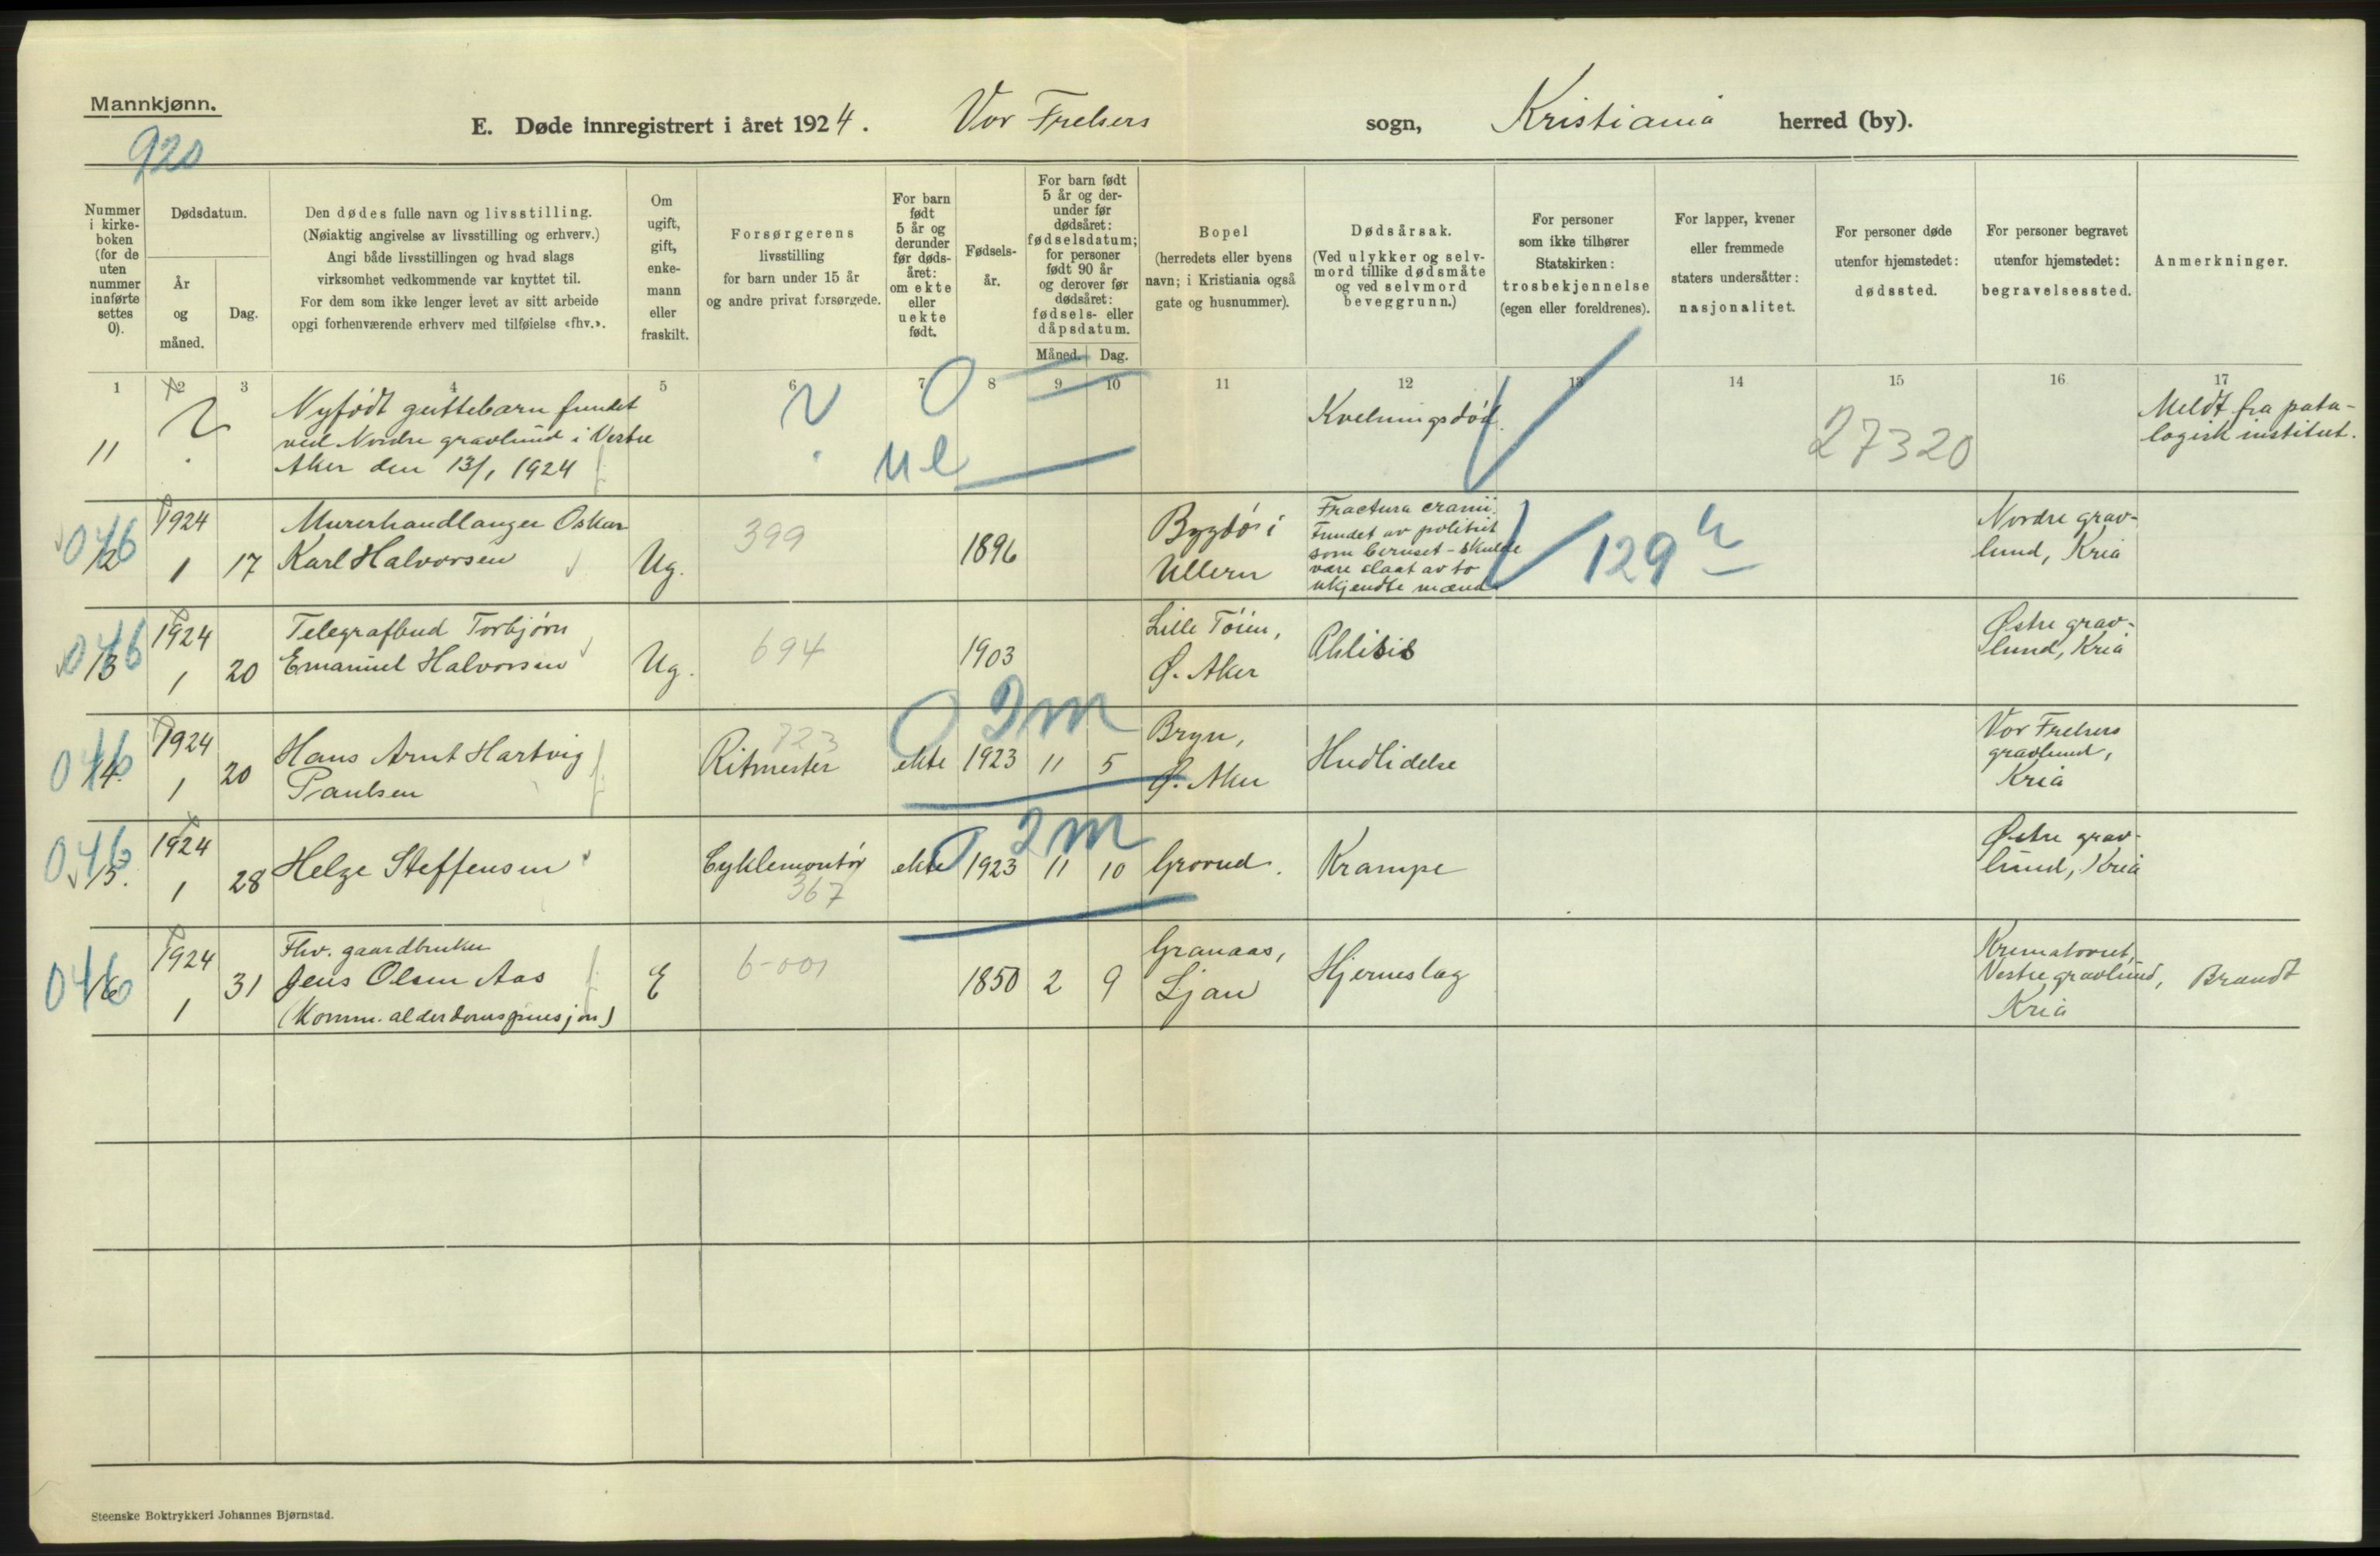 Mannkjønn.
920
E. Døde innregistrert i året 1924. Vor Frelsers sogn, Kristiania herred (by).
Nummer
i kirke-
boken
(for de
uten
nummer
innførte
settes
0).
Dødsdatum.
År
og
måned.
Dag.
Den dødes fulle navn og livsstilling.
(Nøiaktig angivelse av livsstilling og erhverv.)
Angi både livsstillingen og hvad slags
virksomhet vedkommende var knyttet til.
For dem som ikke lenger levet av sitt arbeide
opgi forhenværende erhverv med tilføielse «fhv.».
Om
ugift,
gift,
enke-
mann
eller
fraskilt.
Forsørgerens
livsstilling
for barn under 15 år
og andre privat forsørgede.
For barn
født
5 år og
derunder
før døds-
året:
om ekte
eller
uekte
født.
Fødsels-
år.
For barn født
5 år og der-
under før
dødsåret:
fødselsdatum;
for personer
født 90 år
og derover før
dødsåret:
fødsels- eller
dåpsdatum.
Måned. Dag.
Bopel
(herredets eller byens
navn; i Kristiania også
gate og husnummer).
Dødsårsak.
(Ved ulykker og selv-
mord tillike dødsmåte
og ved selvmord
beveggrunn.)
For personer
som ikke tilhører
Statskirken:
trosbekjennelse
(egen eller foreldrenes).
For lapper, kvener
eller fremmede
staters undersåtter:
nasjonalitet.
For personer døde
utenfor hjemstedet:
dødssted.
For personer begravet
utenfor hjemstedet:
begravelsessted.
Anmerkninger.
1 2 3 4 5 6 7 8 9 10 11 12 13 14 15 16 17
11
?
Nyfødt guttebarn fundet
ved Nordre gravlund i Vestre
Aker den 13/1 1924
?
0
ue
Kvelningsdød.
27320
Meldt fra pato-
logisk institut.
046
12
1924
1
17
Murerhandlanger Oskar
Karl Halvorsen
Ug.
399
1896
Bygdø i
Ullern
Fractura cranii.
Fundet av politiet
som beruset - skulde
være slaat av to
ukjendte mænd
129
Nordre grav-
lund, Kria
046
13
1924
1
20
Telegrafbud Torbjørn
Emanuel Halvorsen
Ug.
694
1903
Lille Tøien,
Ø. Aker
Phtisis
Østre grav-
lund, Kria
046
14.
1924
1
20
Hans Arnt Hartvig
Paulsen
723
Ritmester
ekte
0 2m
1923 11 5
Bryn,
Ø. Aker
Hudlidelse
Vor Frelsers
gravlund,
Kria
046
15.
1924
1
28
Helge Steffensen
Cyklemontør
367
ekte
0 2m
1923 11 10
Grorud.
Krampe
Østre grav-
lund, Kria
046
16
1924
1
31
Fhv. gaardbruker
Jens Olsen Aas
(Komm. alderdomspensjon)
E
6-001
1850 2 9
Granaas,
Ljan
Hjerneslag
Krematoriet,
Vestre gravlund,
Kria
Brandt
Steenske Boktrykkeri Johannes Bjørnstad.